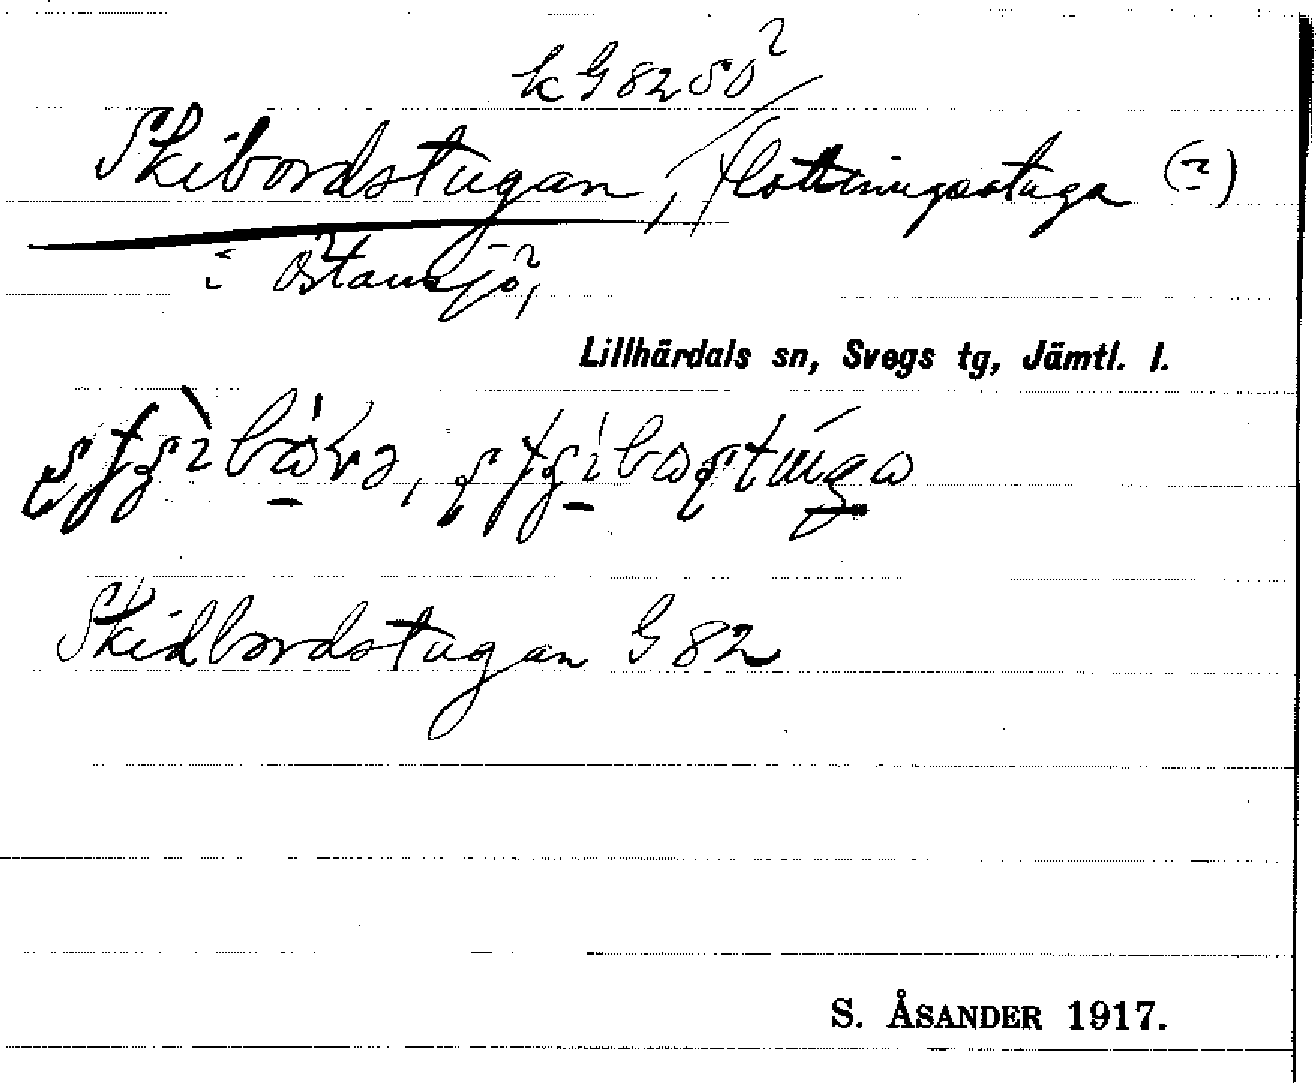 k G 82 SO
Skibordstugan, flottningsstuga (?)
i Östansjö,
Lillhärdals sn, Svegs tg, Jämtl. l.
Skidbordstugan G 82
S. ÅSANDER 1917.